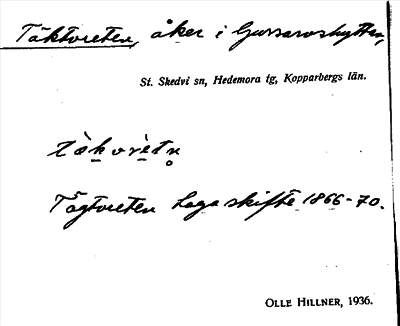 Täktvreten, åker i Gussarvshyttan,
St. Skedvi sn, Hedemora tg, Kopparbergs län.
tä̀kvrètn̥
Tägtvreten Laga skifte 1866-70.
OLLE HILLNER, 1936.